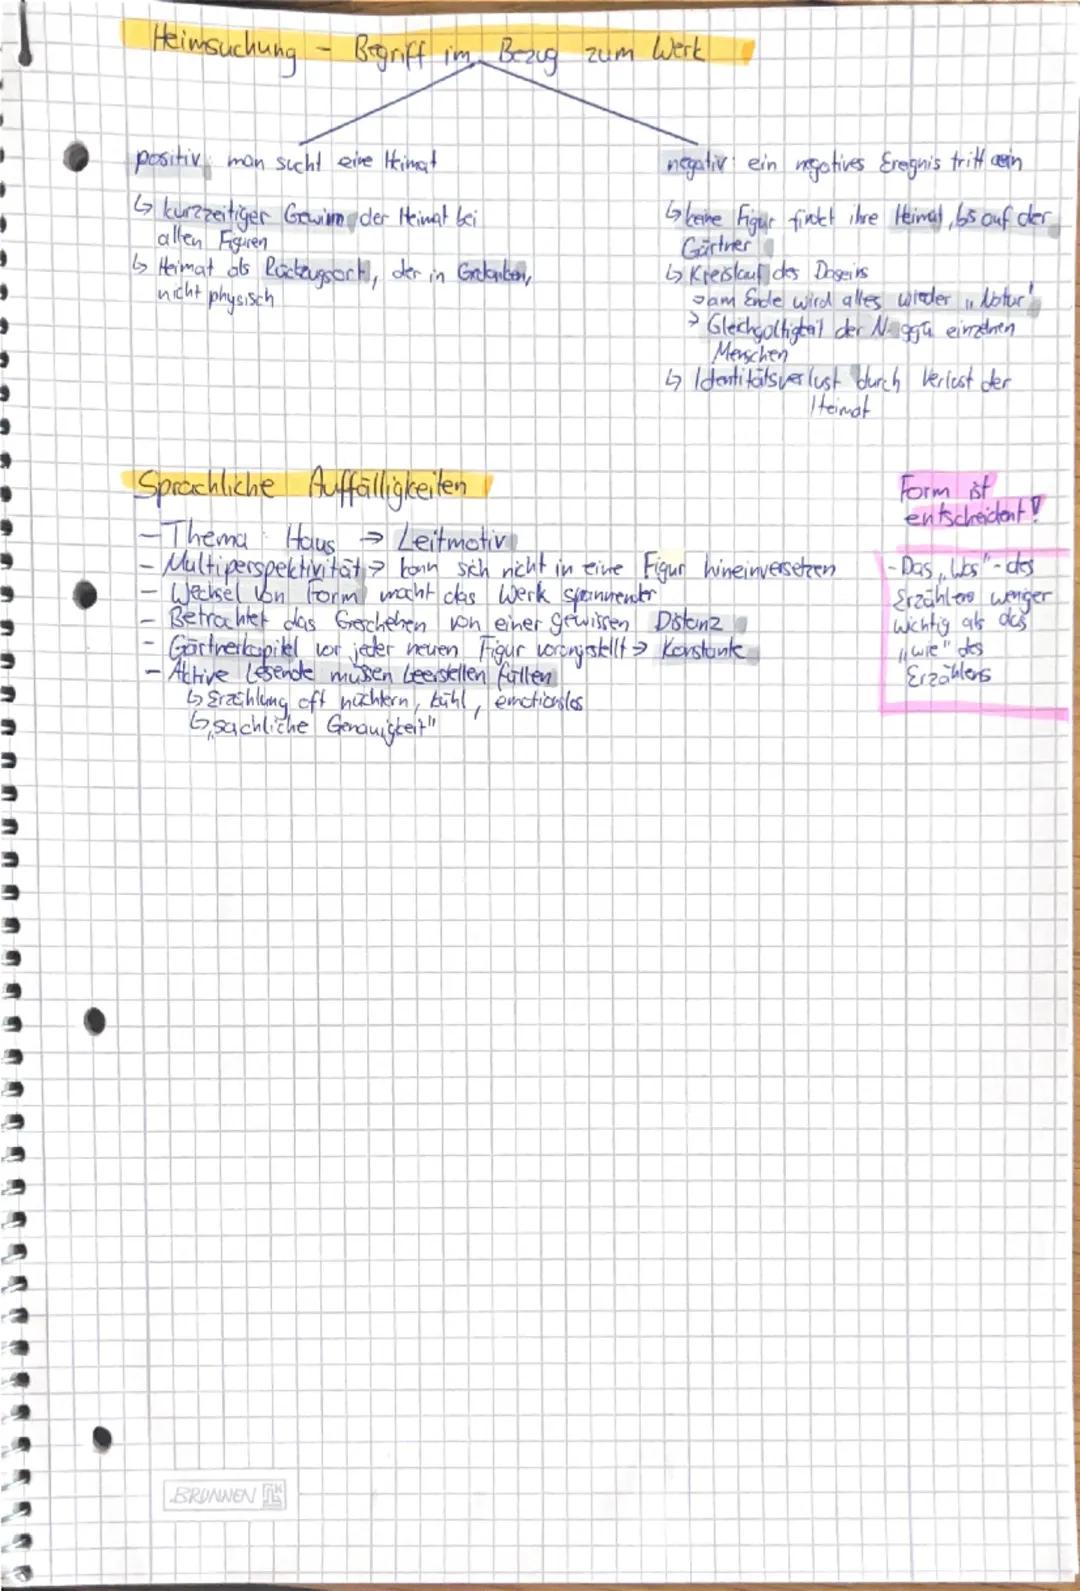 Heimsuchung - Begriff im Bezug zum Werk
positiv: man sucht eine Heimat
↳ kurzzeitiger Gewinn der Heimat bei
allen Figuren
↳ Heimat als Rückzugsort, der in Gedanken,
nicht physisch
negativ: ein negatives Ereignis tritt ein
↳ keine Figur findet ihre Heimat, bis auf der
Gärtner
↳ Kreislauf des Daseins
→ am Ende wird alles wieder „Natur"
> Gleichgültigkeit der N. ggü einzelnen
Menschen
↳ Identitätsverlust durch Verlust der
Heimat
Sprachliche Auffälligkeiten
- Thema: Haus → Leitmotiv
- Multiperspektivität → kann sich nicht in eine Figur hineinversetzen
- Wechsel von Form macht das Werk spannender
- Betrachtet das Geschehen von einer gewissen Distanz
- Gärtnerkapitel vor jeder neuen Figur vorangestellt → Konstante
- Aktive Lesende müssen Leerstellen füllen
↳ Erzählung oft nüchtern, kühl, emotionslos
↳ „sachliche Genauigkeit"
Form ist
entscheident!
- Das „Was" - des
Erzählens weniger
wichtig als das
„wie" des
Erzählens
BRUNNEN